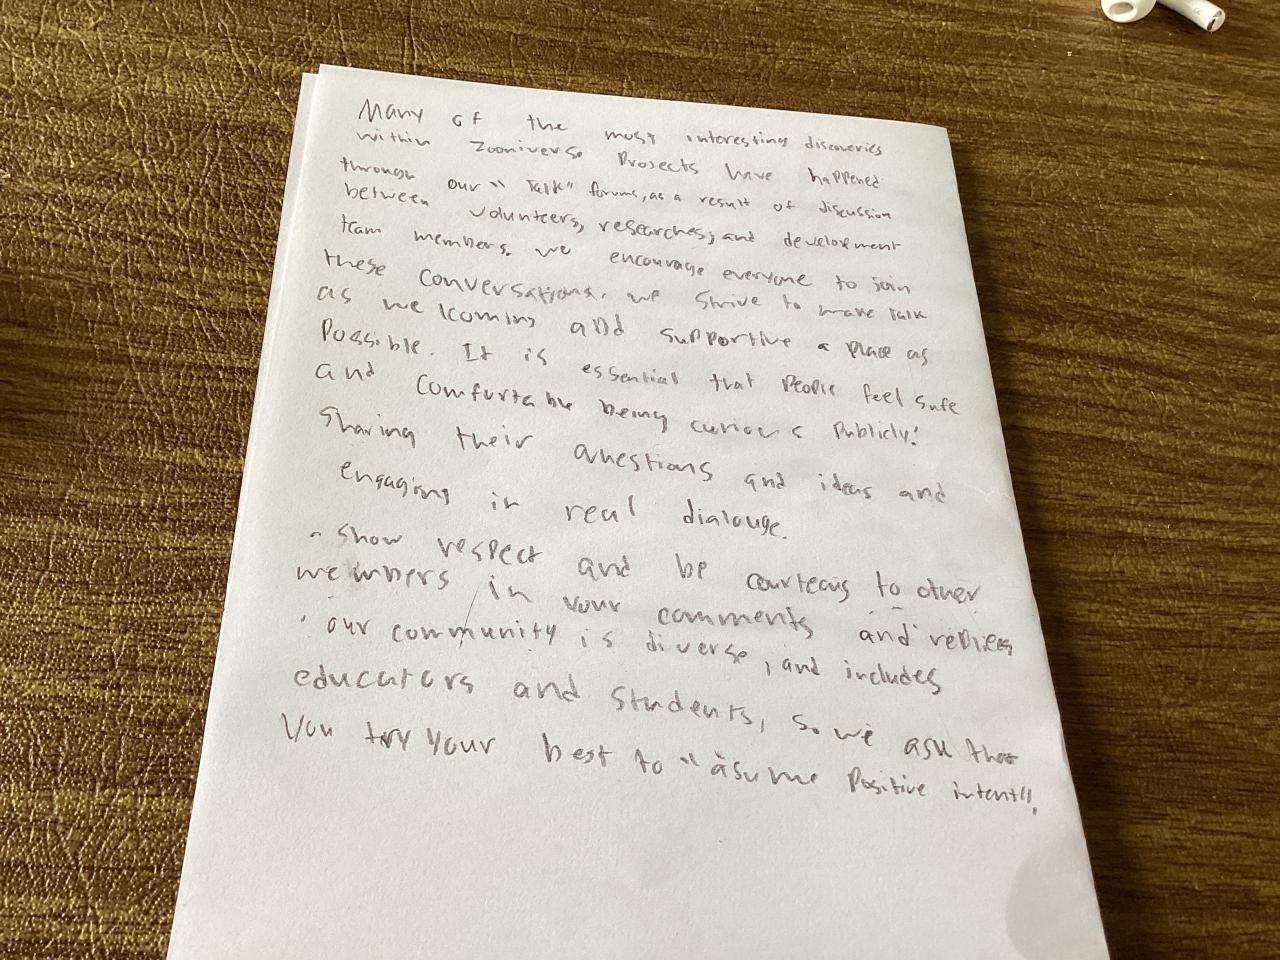 Many of the most interesting discoveries
within Zooniverse Projects have happened
through our "Talk" forums, as a result of discussion
between volunteers, researches, and development
team members. we encourage everyone to join
these conversations. we strive to make Talk
as welcoming and supportive a place as
Possible. It is essential that People feel safe
and Comfortable being curious Publicly!
Sharing their questions and ideas and
engaging in real dialouge.
- Show respect and be courteous to other
members in your comments and replies
· our community is diverse, and includes
educators and students, so we ask that
you try your best to "asume Positive intent".